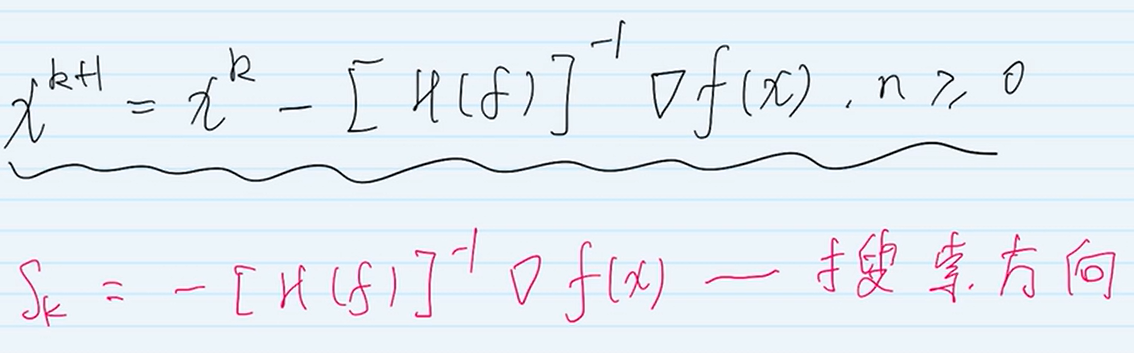 x^{k+1} = x^k - [H(f)]^{-1} ∇f(x), n ≥ 0
S_k = -[H(f)]^{-1} ∇f(x) — 搜索方向